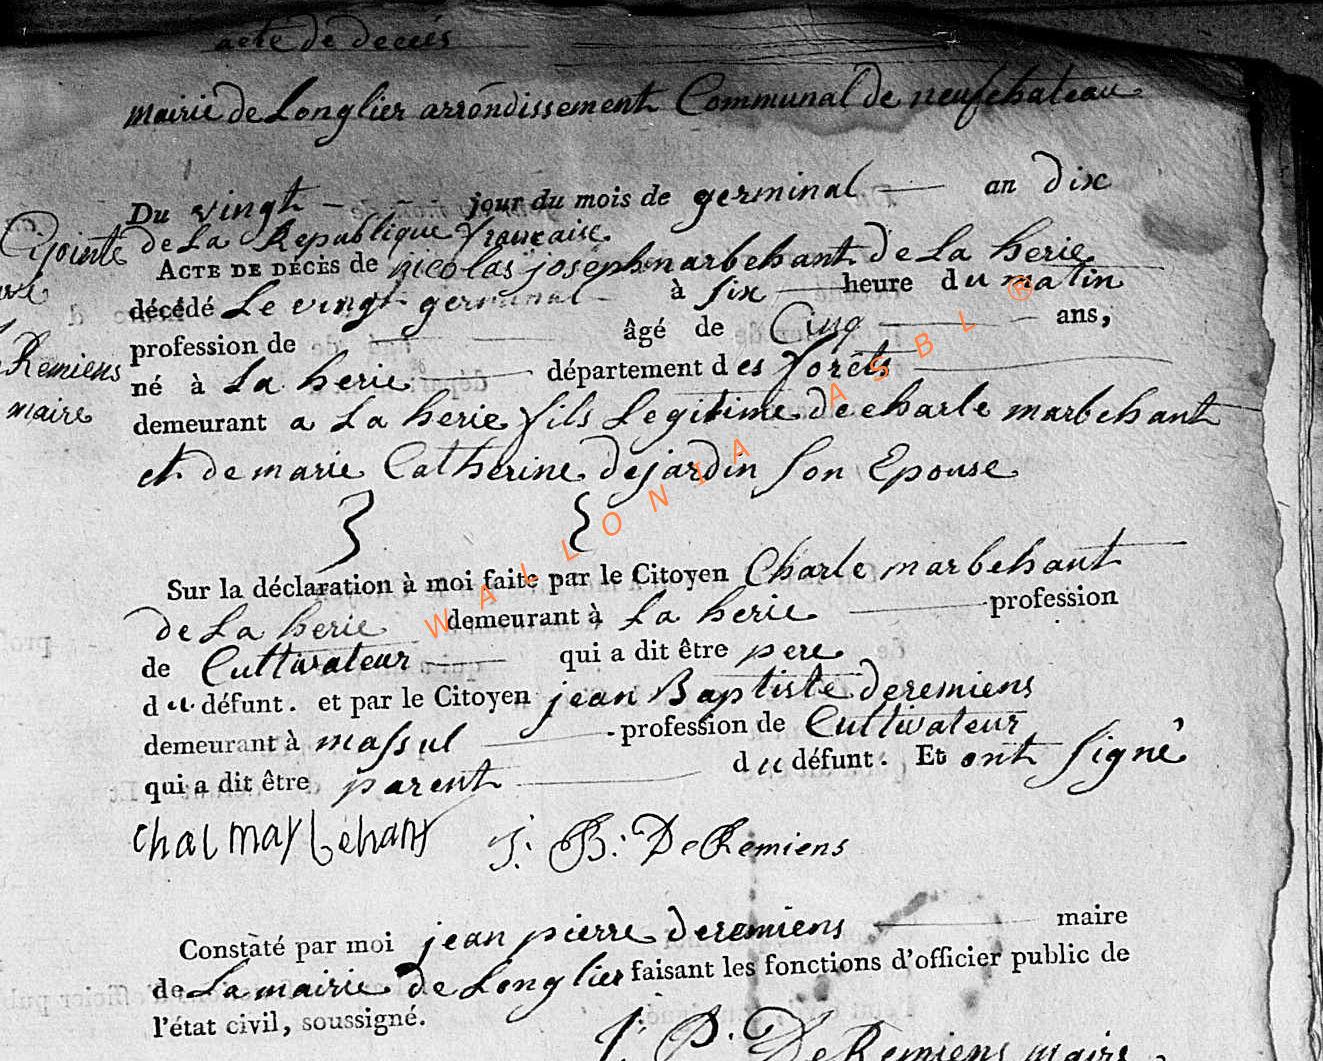 acte de decés
mairie de Longlier arrondissement Communal de neufchateau
Du vingt jour du mois de germinal an dix
de La Republique française
ACTE DE DÉCÈS de nicolas joseph marbehant de La herie
décédé Le vingt germinal à six heure du matin
profession de âgé de Cinq ans,
né à La herie département des forêts
demeurant a La herie fils Legitime de charle marbehant
et de marie Catherine dejardin son Epouse
Sur la déclaration à moi faite par le Citoyen Charle marbehant
de La herie demeurant à La herie profession
de Cultivateur qui a dit être pere
du défunt. et par le Citoyen jean Baptiste deremiens
demeurant à massul profession de Cultivateur
qui a dit être parent du défunt. Et ont signé
chal marbehant J. B. DeRemiens
Constaté par moi jean pierre deremiens maire
de La mairie de Longlier faisant les fonctions d'officier public de
l'état civil, soussigné.
J. P. DeRemiens maire
Remiens
maire
WALLONIA ASBL ®